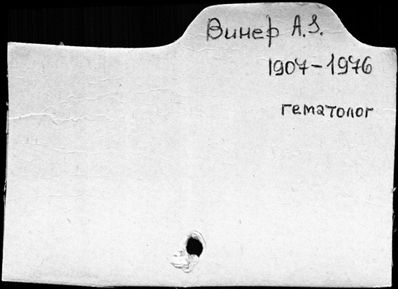 Винер А.З.
1907-1976
гематолог